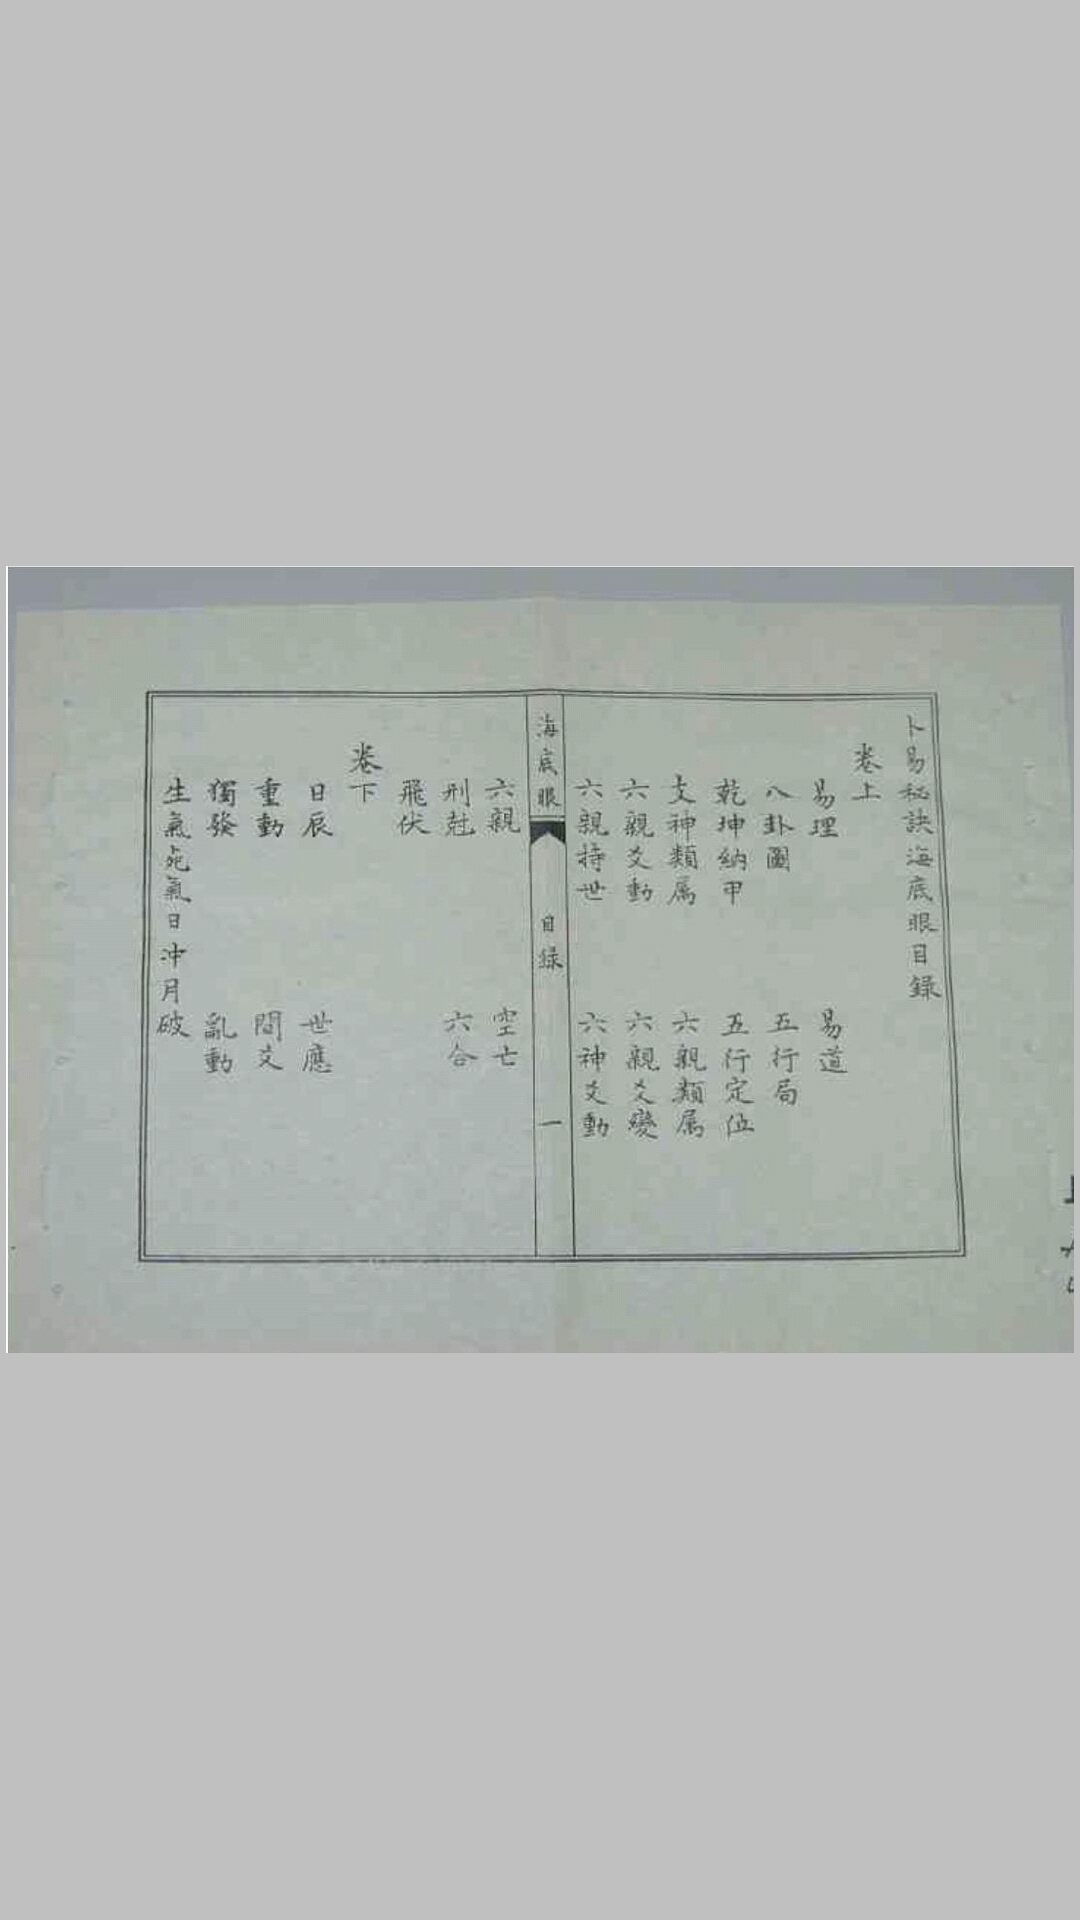 卜易秘訣海底眼目錄
卷上
易理 易道
八卦圖 五行局
乾坤納甲 五行定位
支神類属 六親類属
六親爻動 六親爻變
六親持世 六神爻動
海底眼 目錄 一
六親 空亡
刑尅 六合
飛伏
卷下
日辰 世應
重動 間爻
獨發 亂動
生氣死氣日冲月破